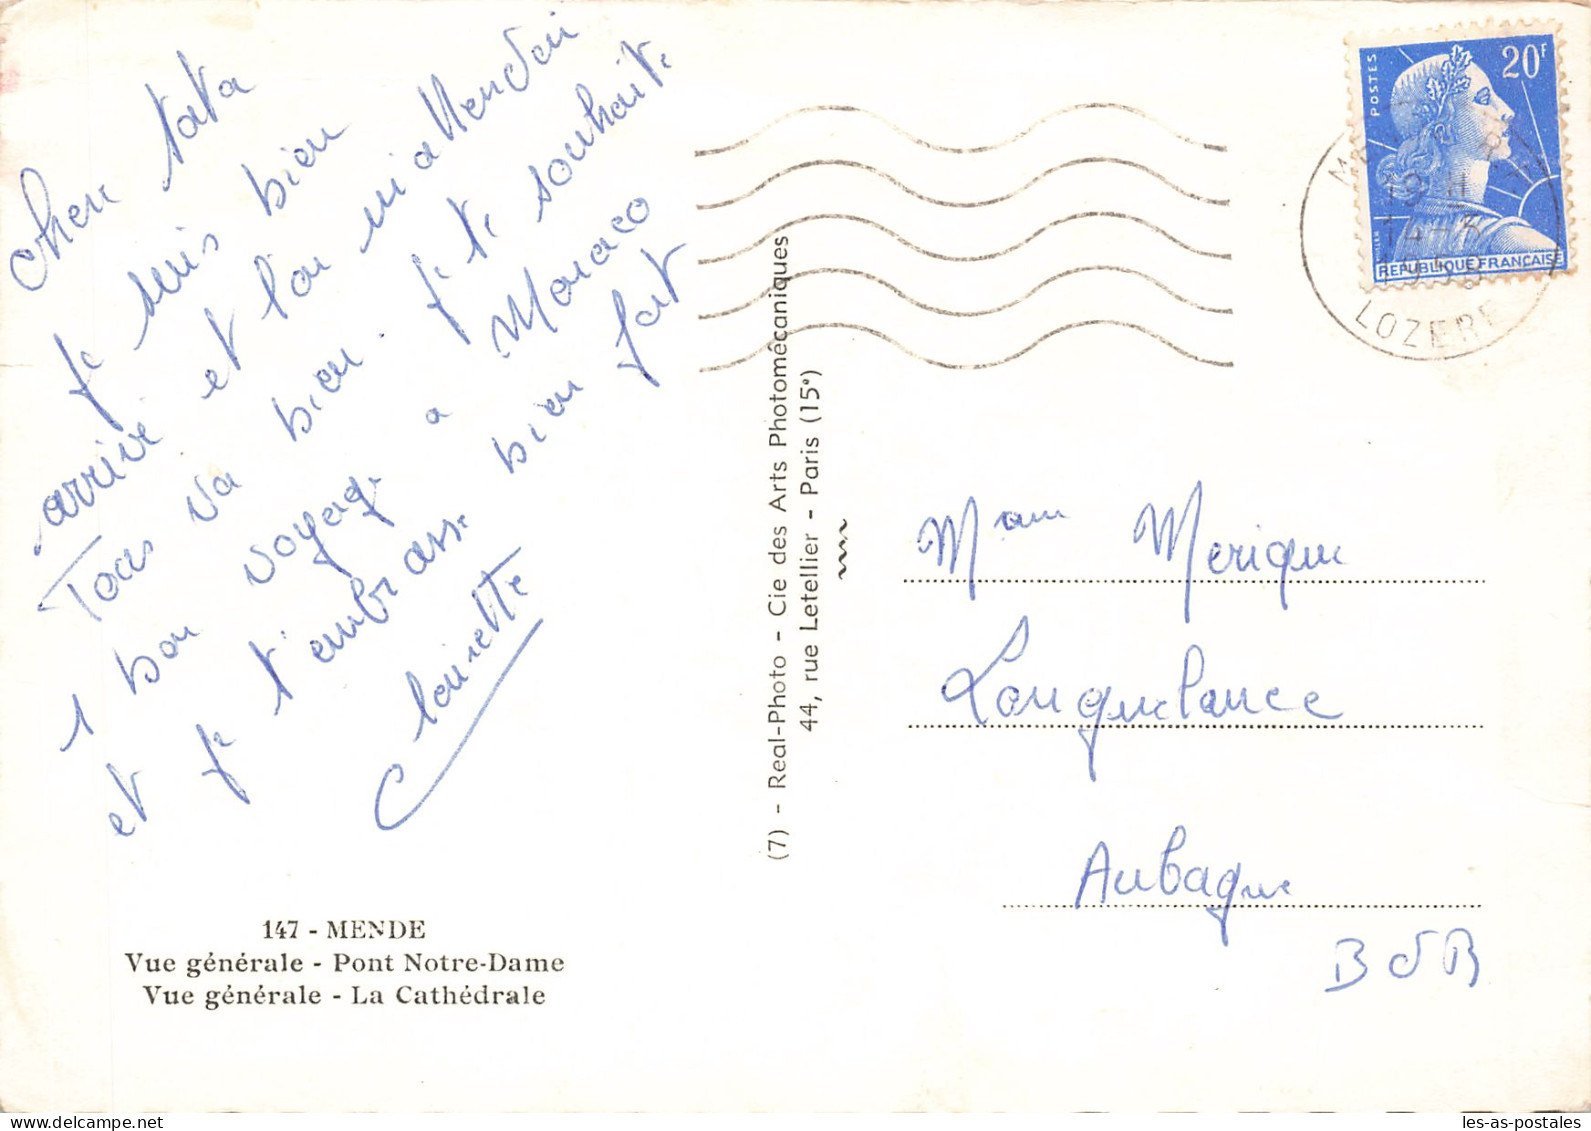 Cher tata
je suis bien
arrivé et l'on m'attendai
Tous va bien. je te souhaite
1 bon voyage a Monaco
et je t'embrasse bien fort
Clauette
147 - MENDE
Vue générale - Pont Notre-Dame
Vue générale - La Cathédrale
(7) - Real-Photo - Cie des Arts Photomécaniques
44, rue Letellier - Paris (15e)
POSTES
20F
REPUBLIQUE FRANÇAISE
19 H
14-3
LOZERE
Mam Merique
Longuelance
Aubagne
B d R
les-as-postales